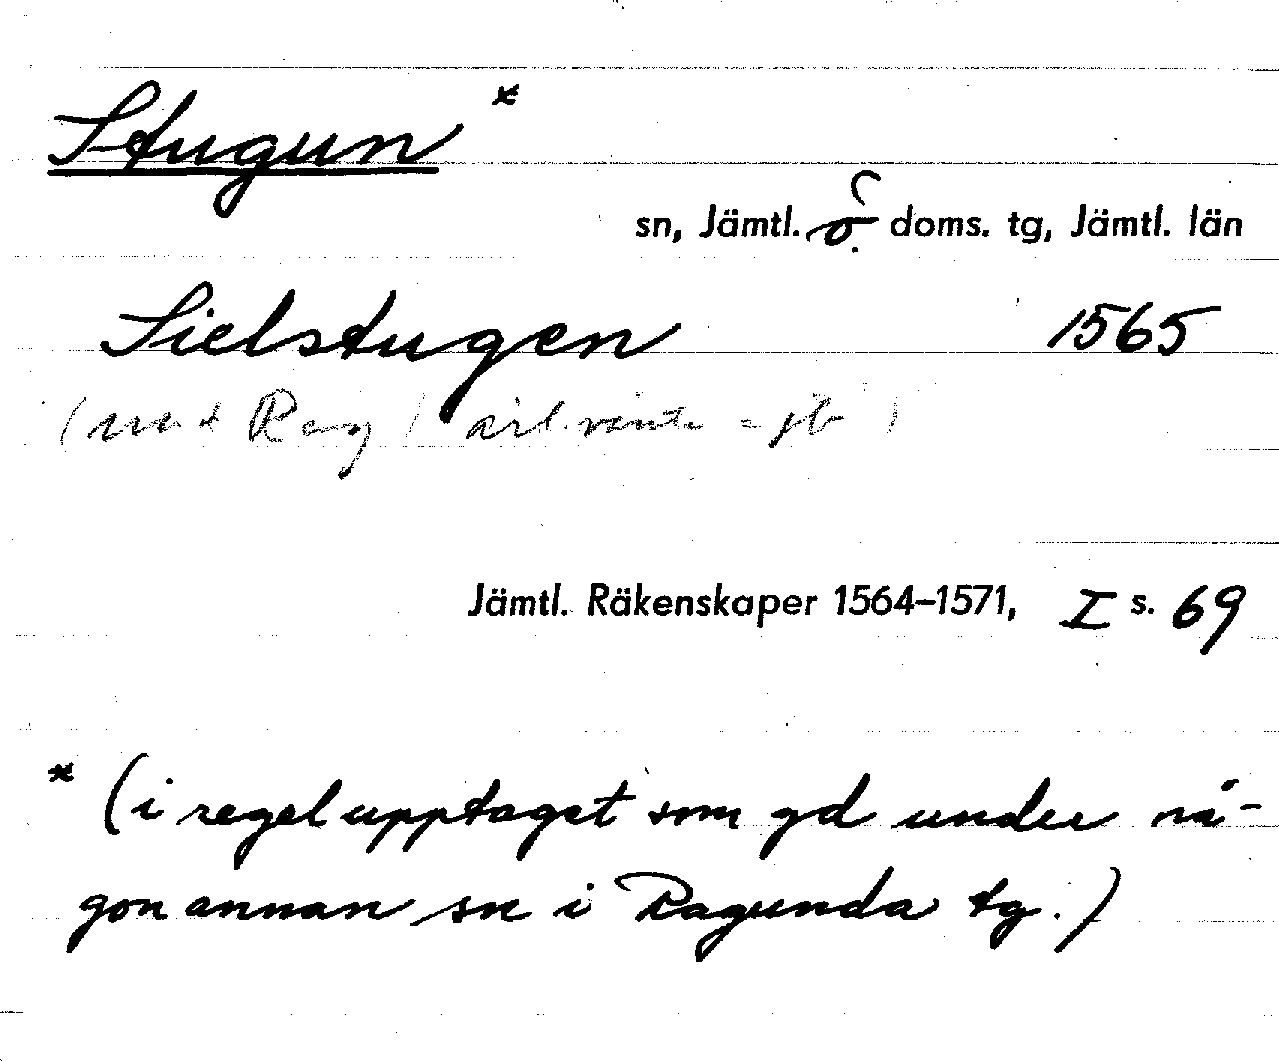 Stugun *
sn, Jämtl. ö. doms. tg, Jämtl. län
Sielstugen 1565
(und Rag / ärl. ränta - jb)
Jämtl. Räkenskaper 1564–1571, I s. 69
* (i regel upptaget som gd under nå-
gon annan sn i Ragunda tg.)